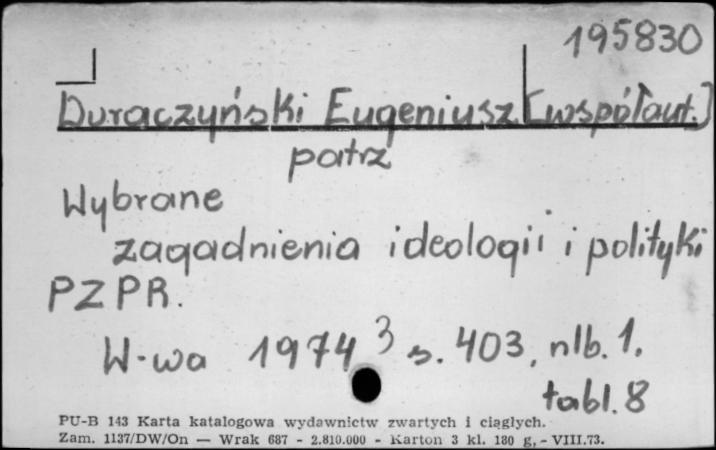 195830
Duraczyński Eugeniusz [współaut.]
patrz
Wybrane
zagadnienia ideologii i polityki
PZPR.
W-wa 1974³ s. 403, nlb. 1.
tabl. 8
PU-B 143 Karta katalogowa wydawnictw zwartych i ciągłych.
Zam. 1137/DW/On — Wrak 687 - 2.810.000 - Karton 3 kl. 180 g, - VIII.73.